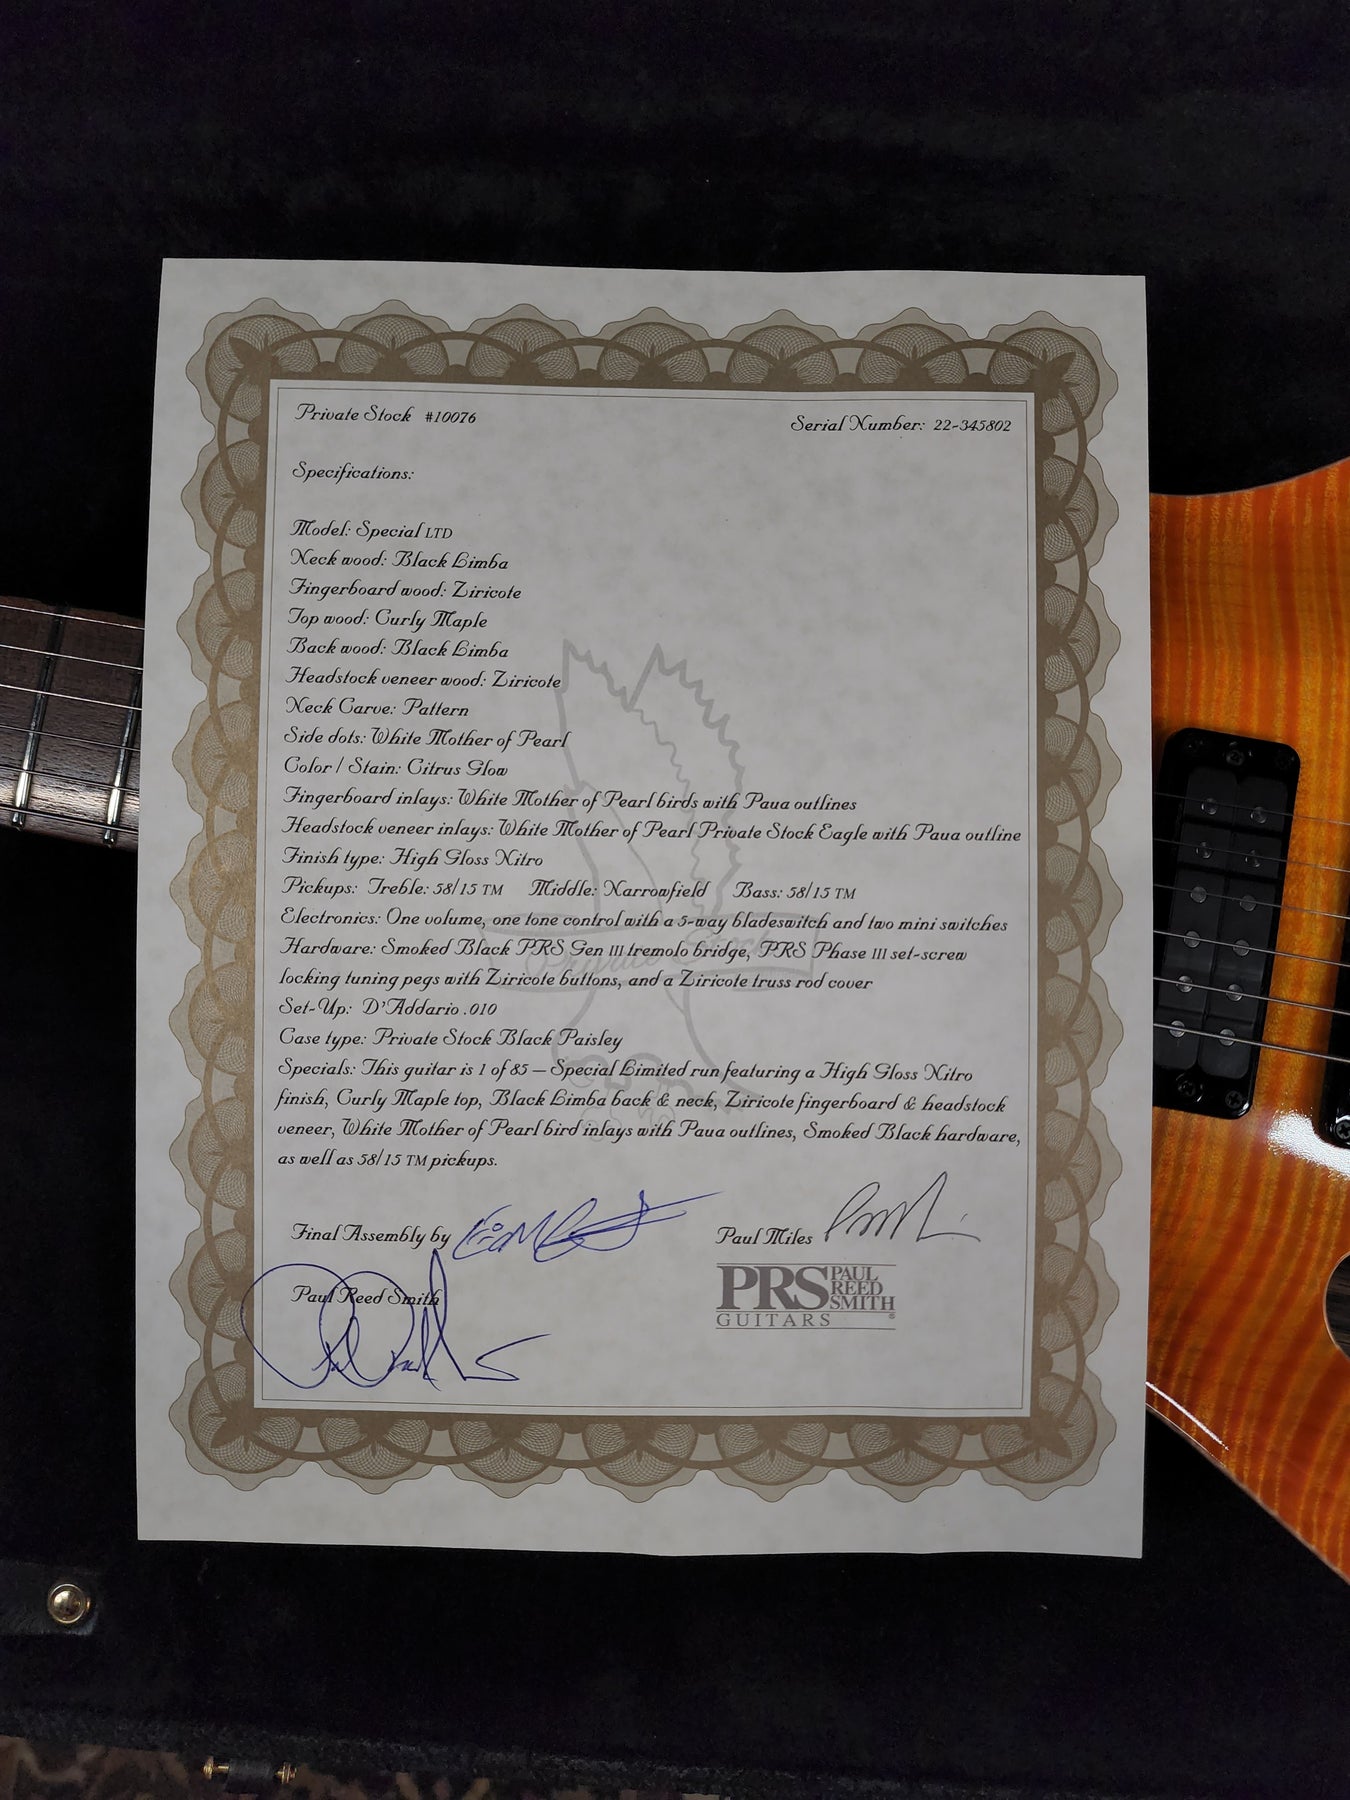 Private Stock #10076
Serial Number: 22-345802
Specifications:
Model: Special LTD
Neck wood: Black Limba
Fingerboard wood: Ziricote
Top wood: Curly Maple
Back wood: Black Limba
Headstock veneer wood: Ziricote
Neck Carve: Pattern
Side dots: White Mother of Pearl
Color / Stain: Citrus Glow
Fingerboard inlays: White Mother of Pearl birds with Paua outlines
Headstock veneer inlays: White Mother of Pearl Private Stock Eagle with Paua outline
Finish type: High Gloss Nitro
Pickups: Treble: 58/15 TM Middle: Narrowfield Bass: 58/15 TM
Electronics: One volume, one tone control with a 5-way bladeswitch and two mini switches
Hardware: Smoked Black PRS Gen III tremolo bridge, PRS Phase III set-screw
locking tuning pegs with Ziricote buttons, and a Ziricote truss rod cover
Set-Up: D'Addario .010
Case type: Private Stock Black Paisley
Specials: This guitar is 1 of 85 – Special Limited run featuring a High Gloss Nitro
finish, Curly Maple top, Black Limba back & neck, Ziricote fingerboard & headstock
veneer, White Mother of Pearl bird inlays with Paua outlines, Smoked Black hardware,
as well as 58/15 TM pickups.
Final Assembly by
Paul Miles
Paul Reed Smith
PRS PAUL REED SMITH
GUITARS
Private Stock